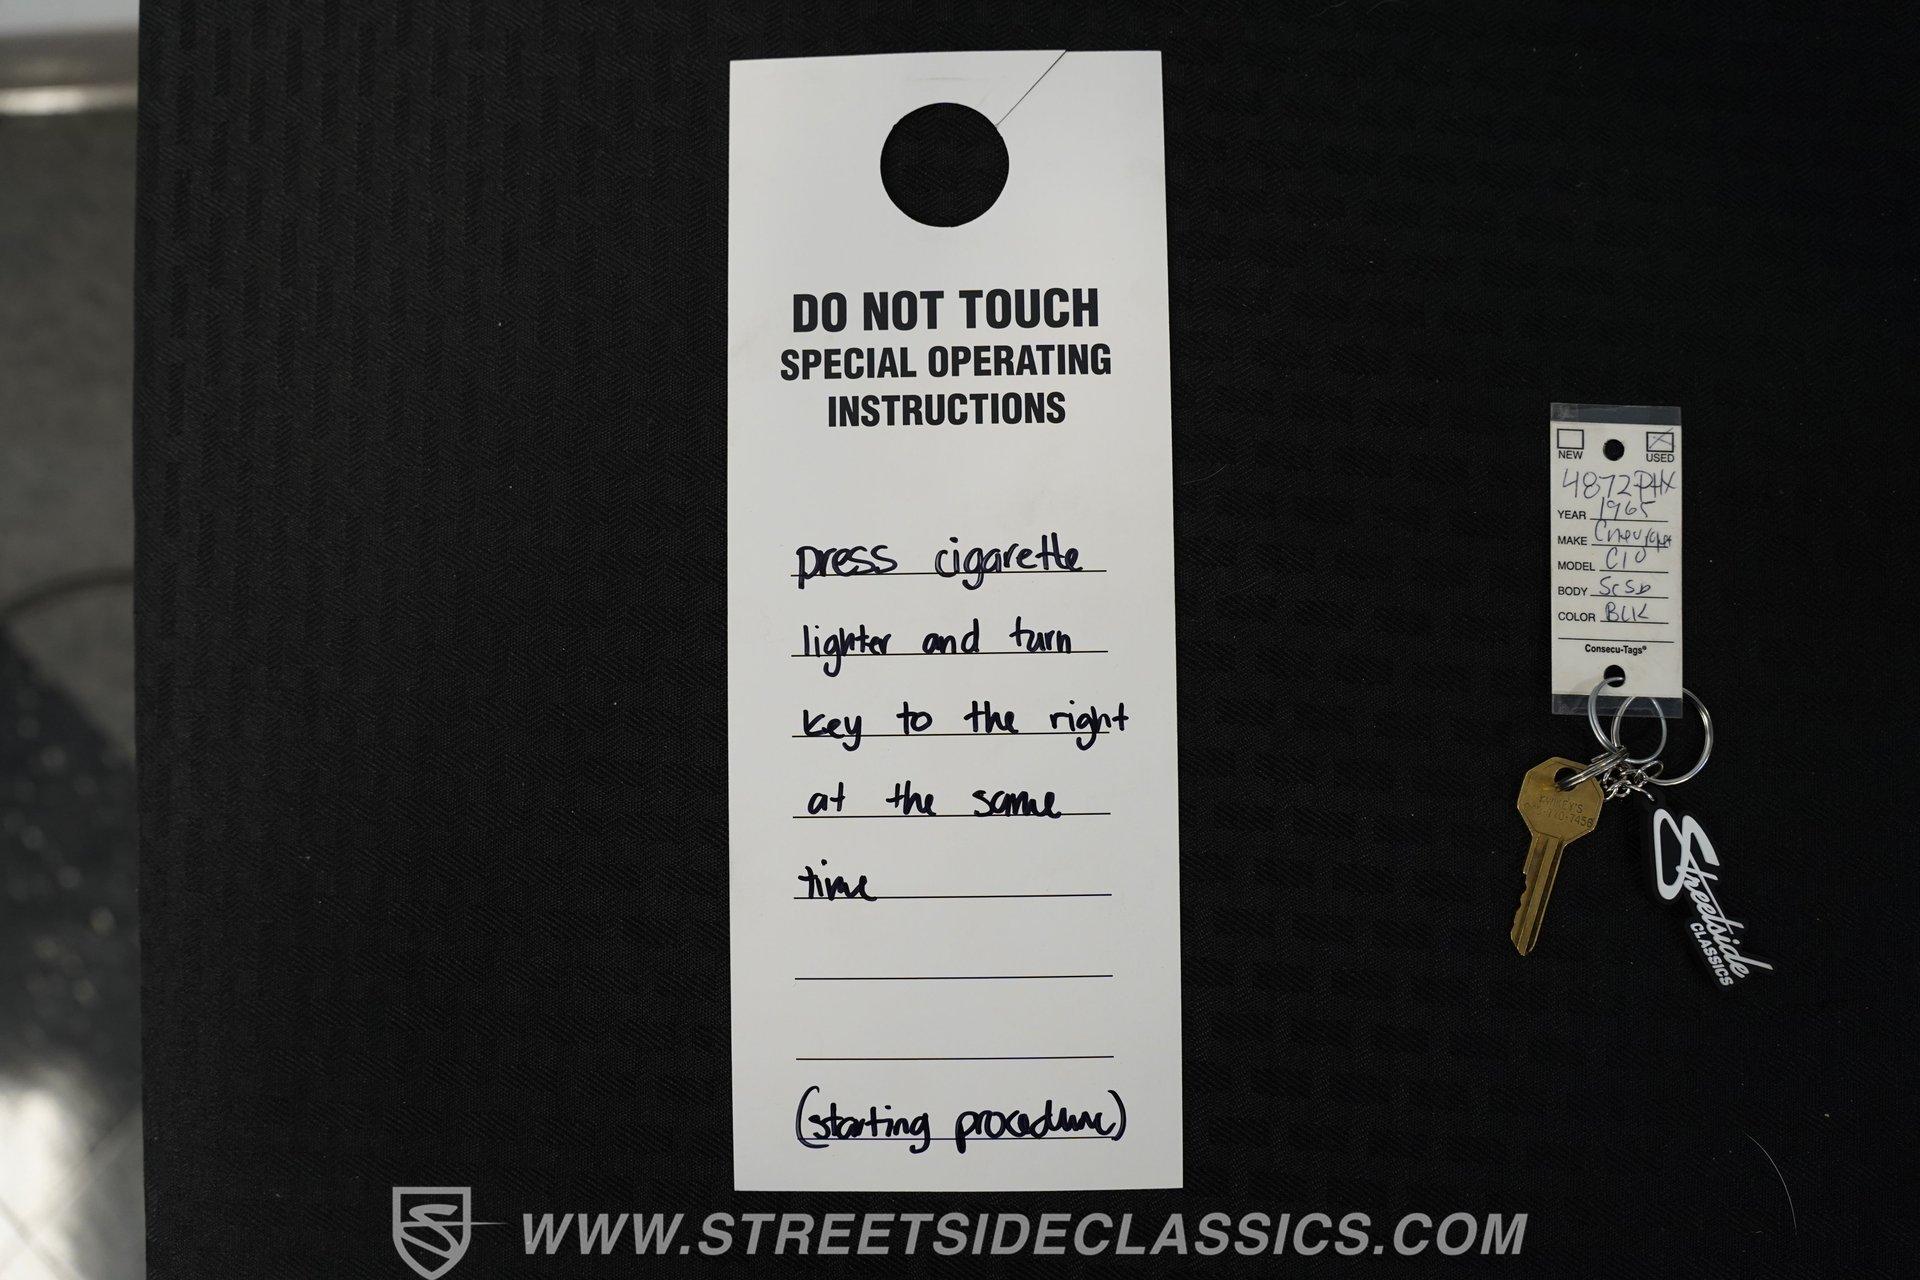 DO NOT TOUCH
SPECIAL OPERATING
INSTRUCTIONS
press cigarette
lighter and turn
key to the right
at the same
time
(starting procedure)
NEW USED
4872PHX
YEAR 1965
MAKE Chevrolet
MODEL C10
BODY SCSB
COLOR BLK
Consecu-Tags®
Streetside
CLASSICS
WWW.STREETSIDECLASSICS.COM